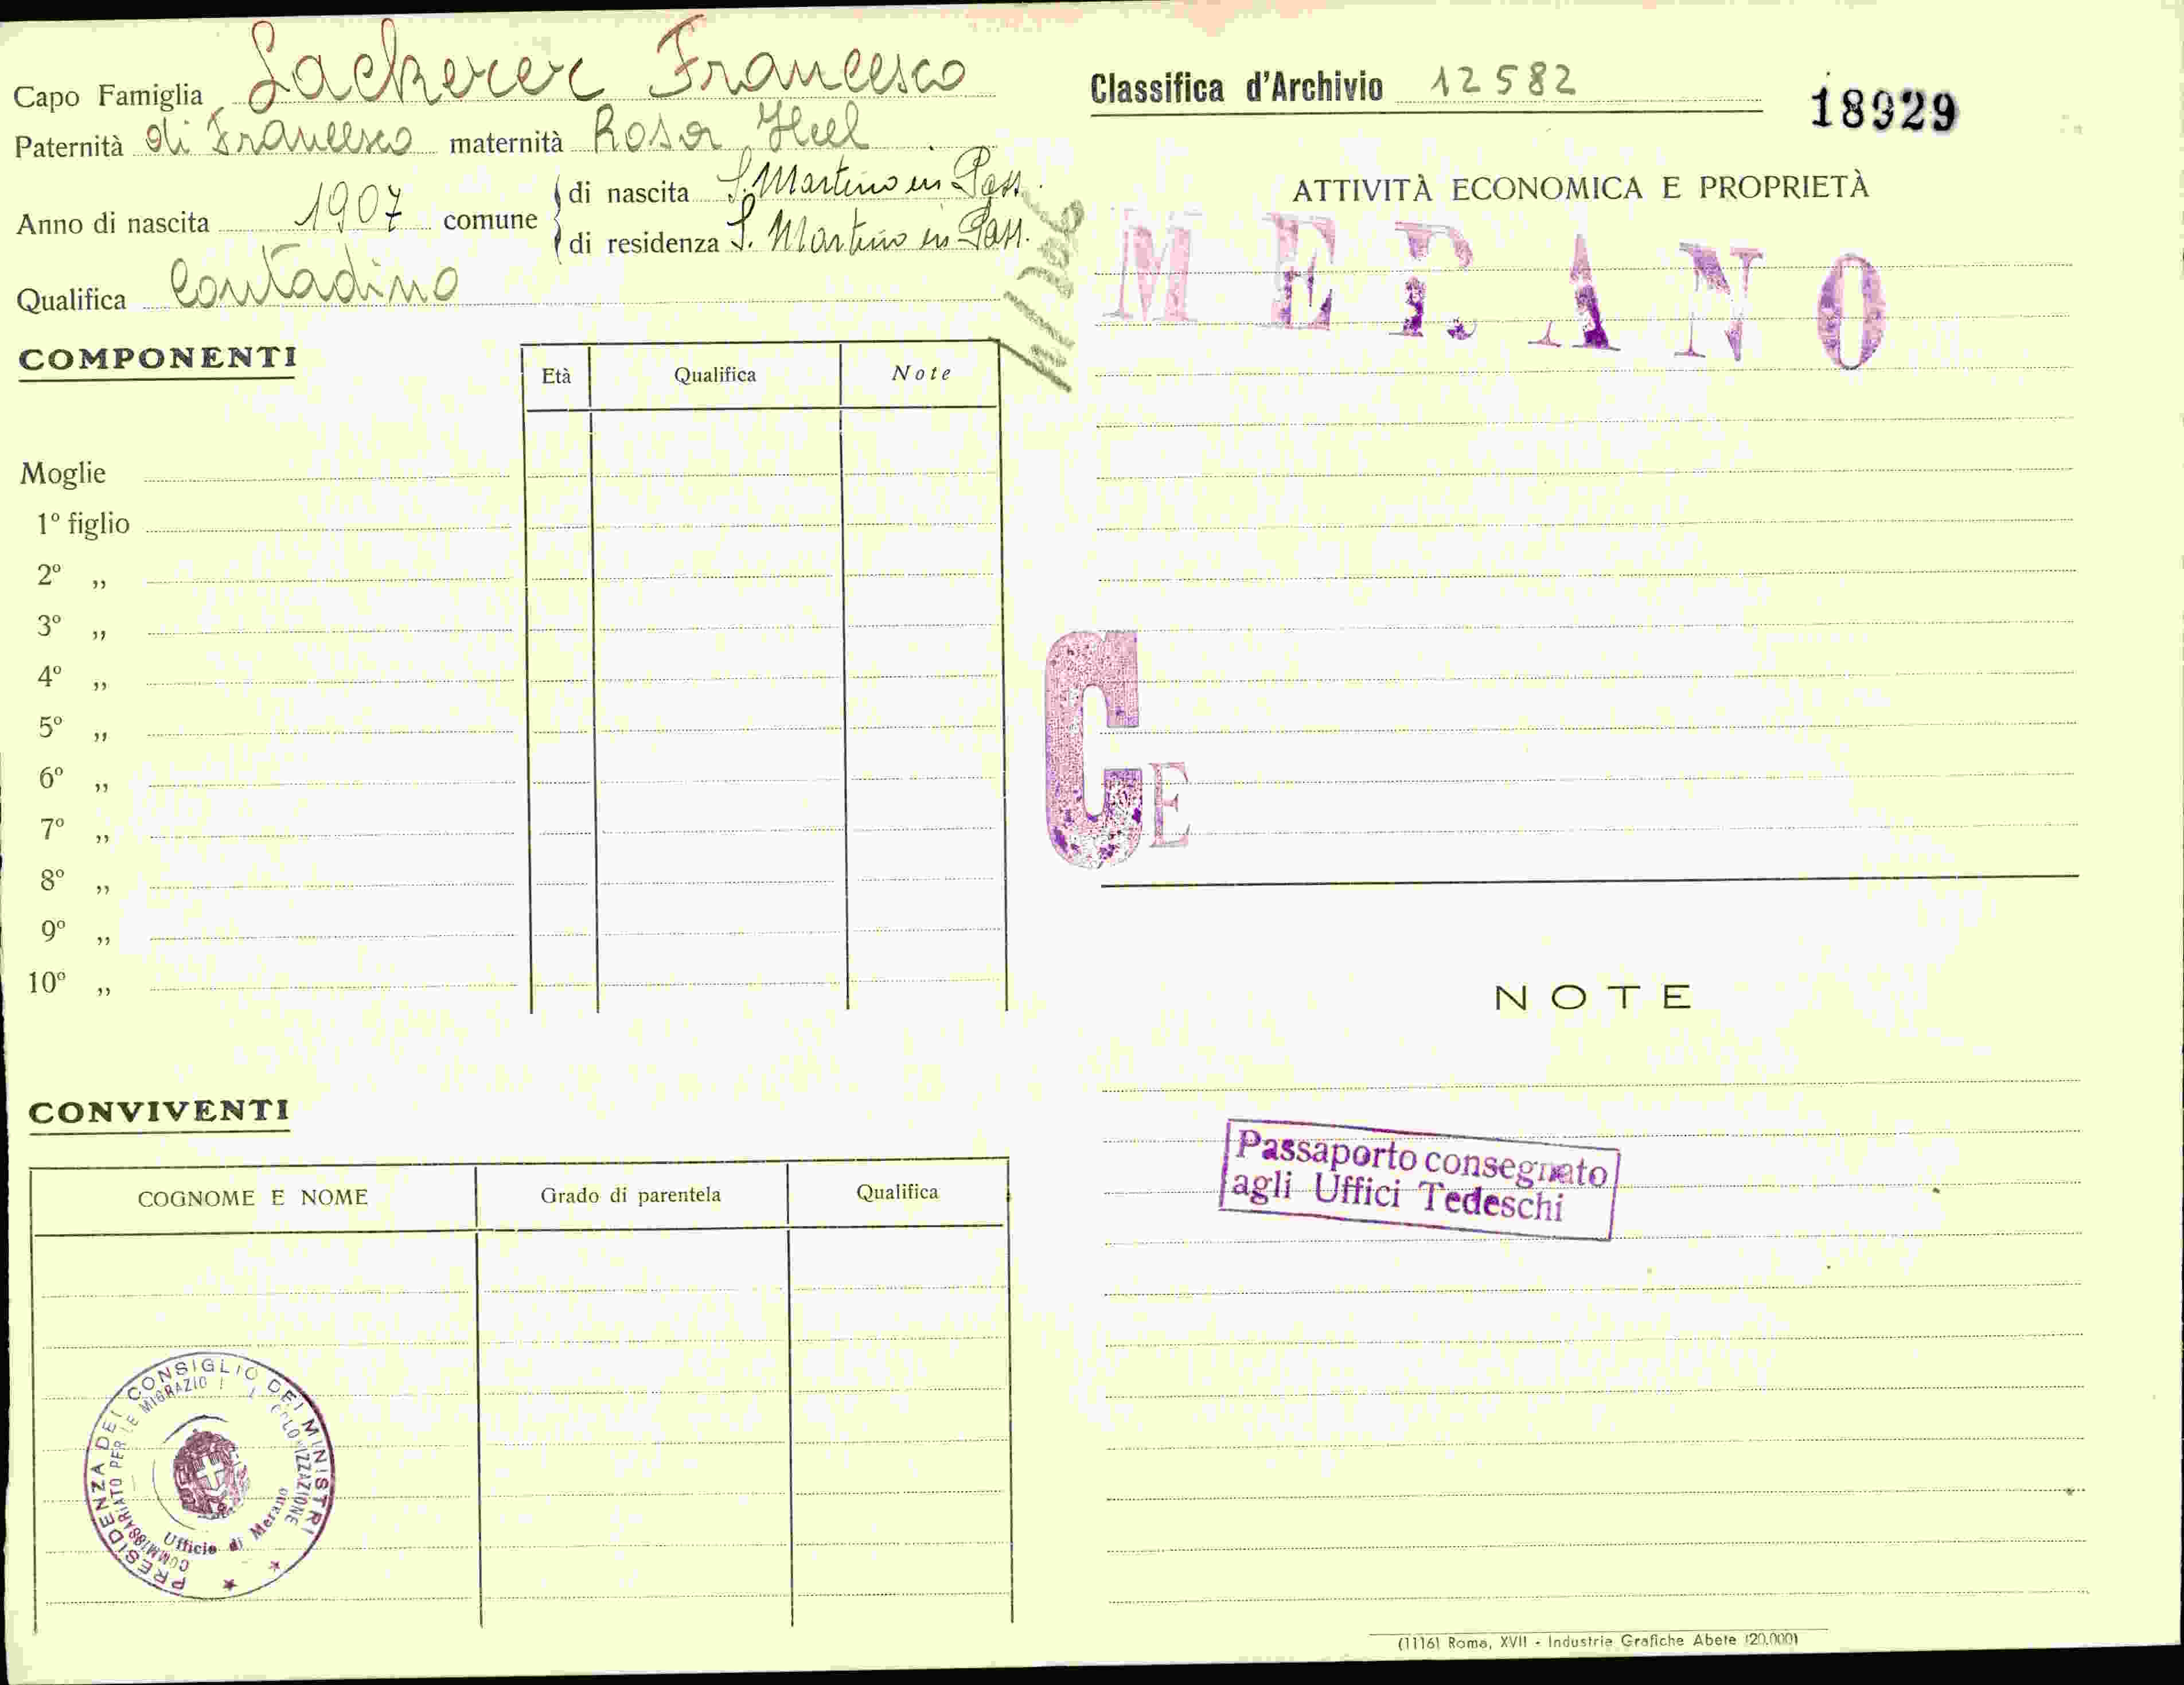 Capo Famiglia Lackerer Francesco
Paternità di Francesco maternità Rosa
Anno di nascita 1907 comune di nascita S. Martino in Pass.
di residenza S. Martino in Pass.
Qualifica Contadino
COMPONENTI
Età Qualifica Note
Moglie
1º figlio
2º „
3º „
4º „
5º „
6º „
7º „
8º „
9º „
10º „
CONVIVENTI
COGNOME E NOME Grado di parentela Qualifica
PRESIDENZA DEL CONSIGLIO DEI MINISTRI
COMMISSARIATO PER LE MIGRAZIO I COLONIZZAZIONE
Ufficio di Merano
Classifica d'Archivio 12582
18929
ATTIVITÀ ECONOMICA E PROPRIETÀ
MERANO
C E
NOTE
Passaporto consegnato
agli Uffici Tedeschi
(1116) Roma, XVII - Industrie Grafiche Abete (20.000)